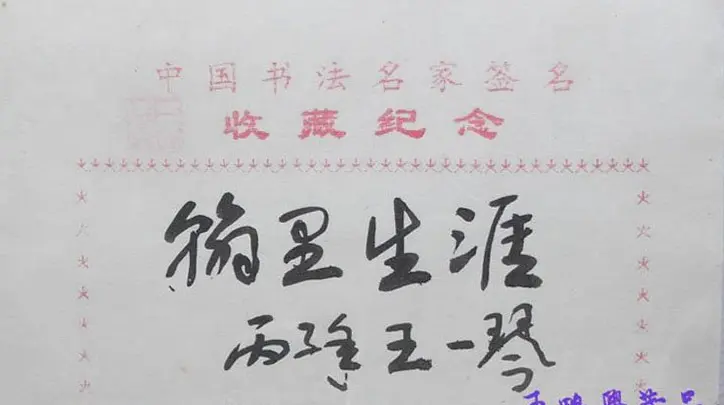 中国书法名家签名
收藏纪念
翰墨生涯
丙子冬王一琴